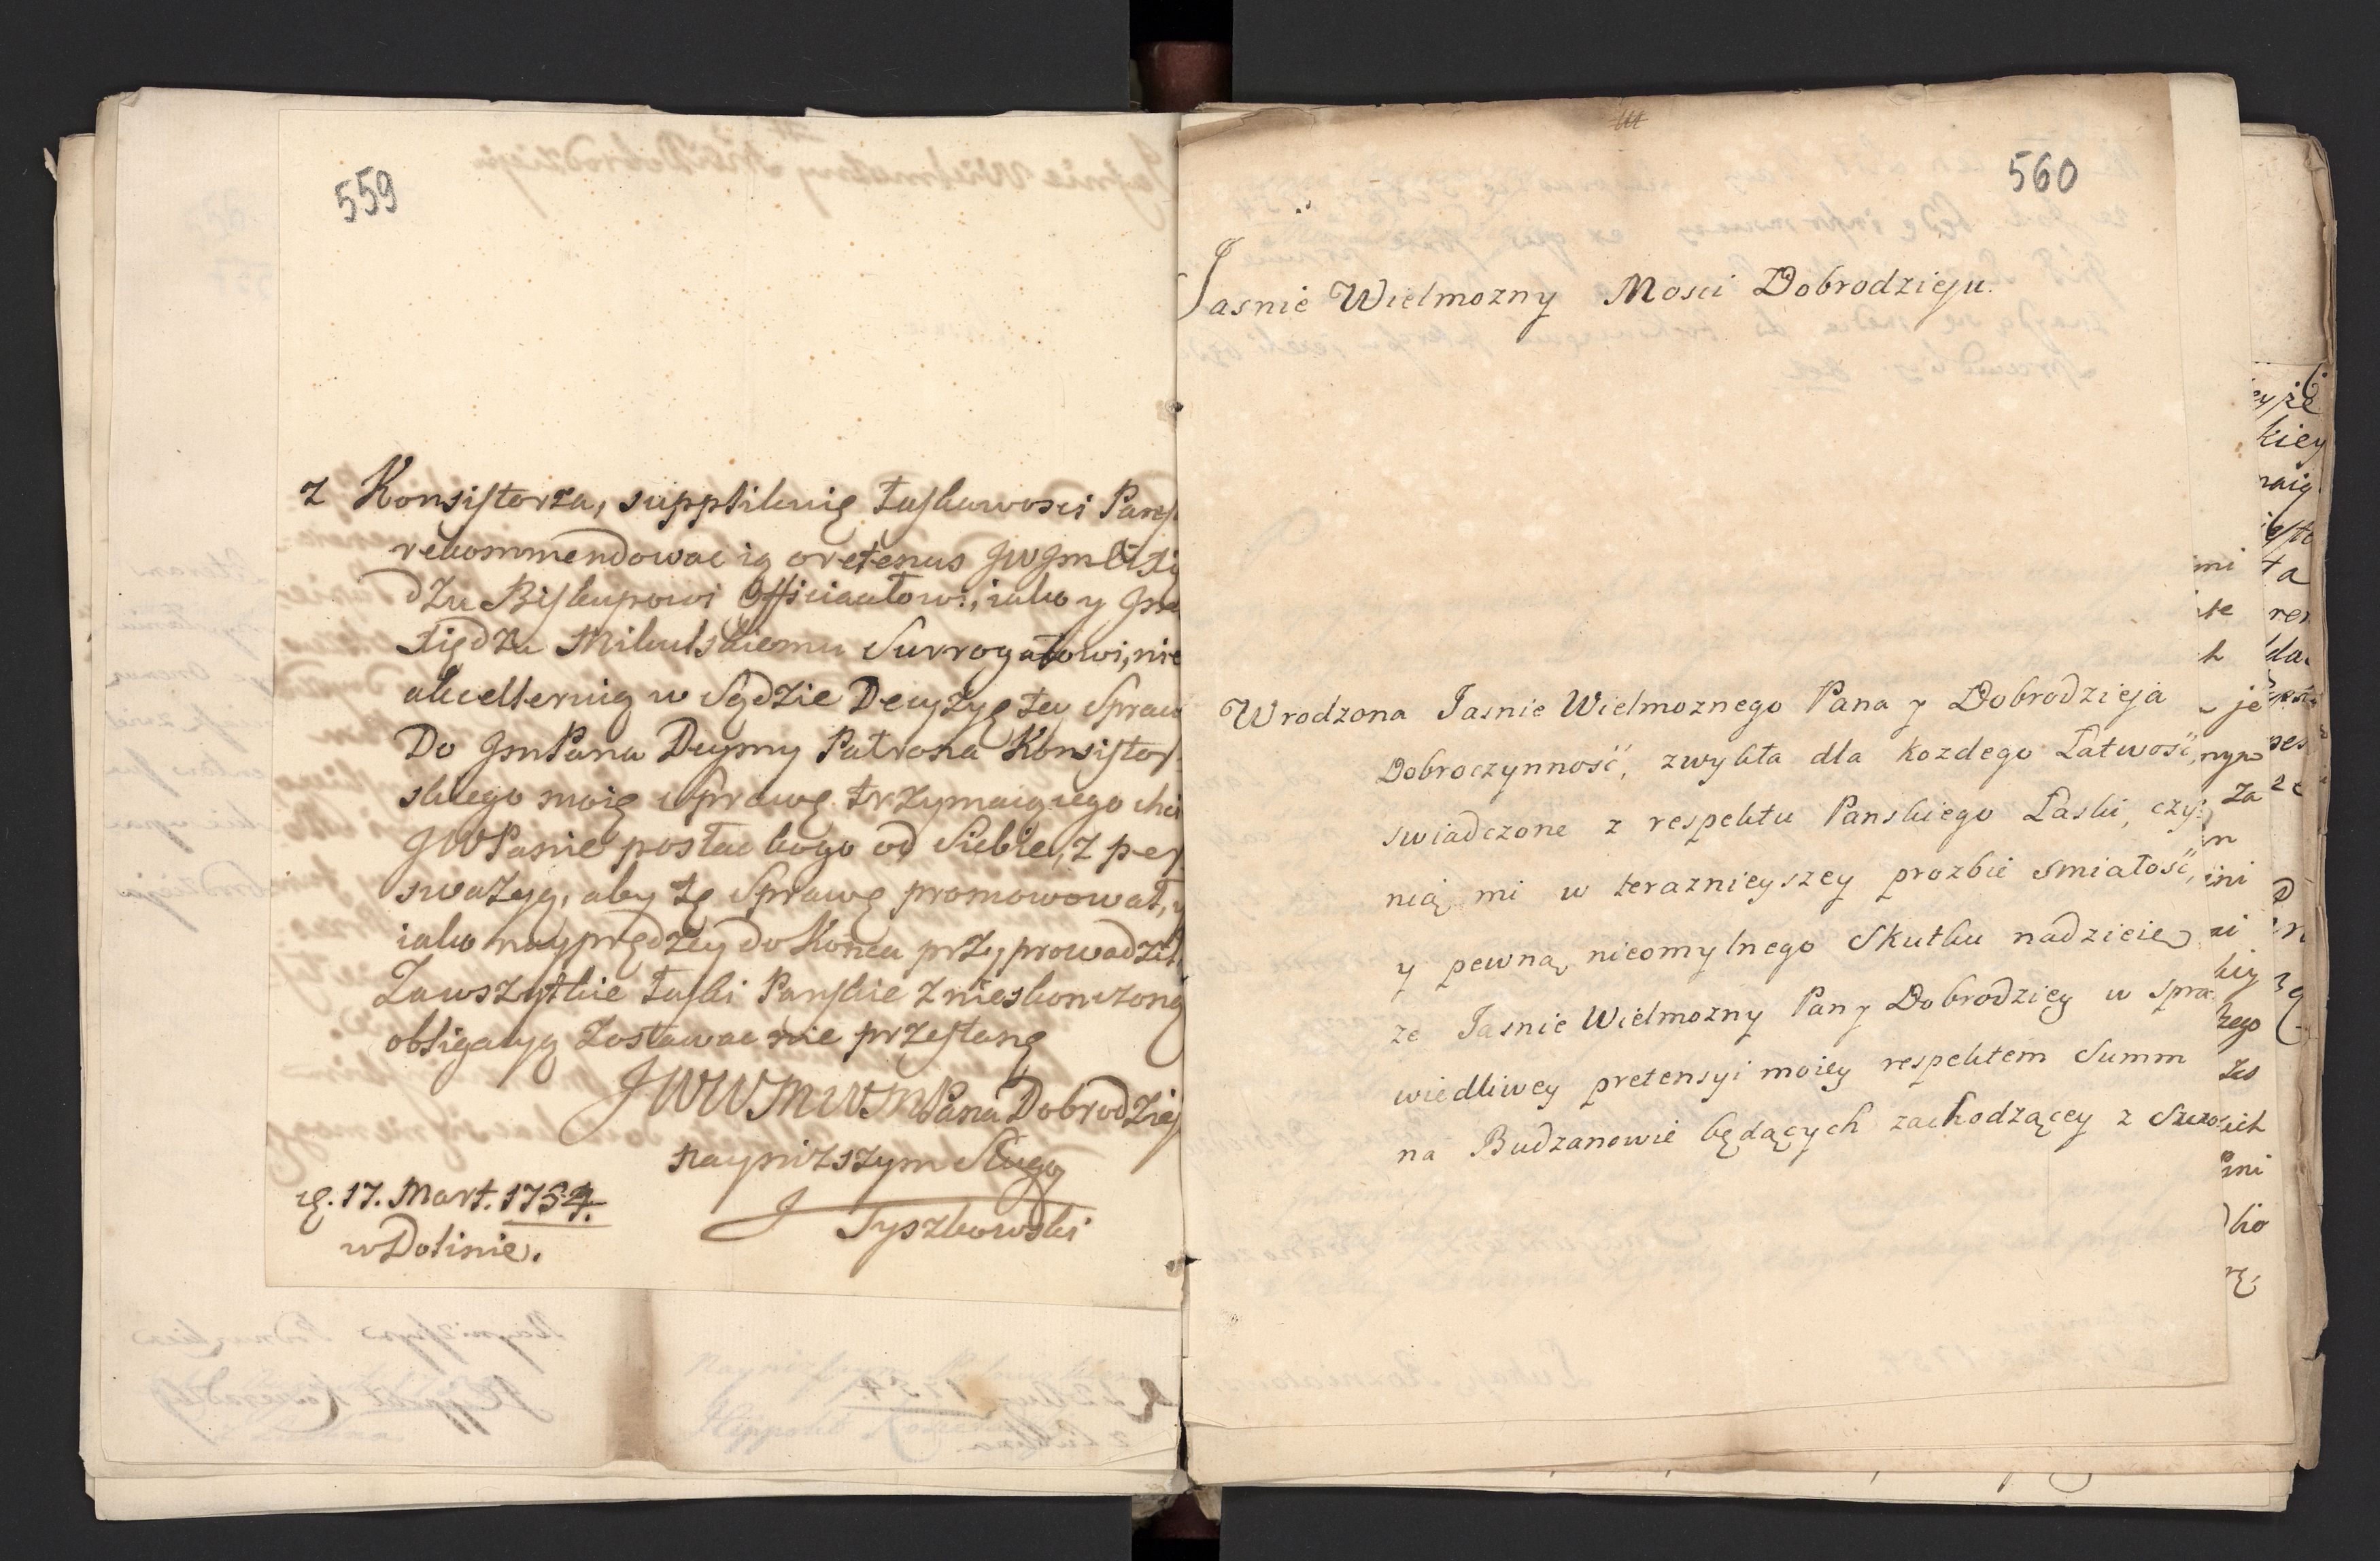 559
z Konsistorza, supplikuię łaskawosci Pańs
rekommendowac ią oretenus JWJm Xię
dzu Biskupowi Officiałowi, iako y Jm
Xiędzu Mikulskiemu Surrogatowi, nie
akcelleruią w Sądzie Decyzyę tey Spraw
Do JmPana Deymy Patrona Konsistor
skiego moię Sprawę trzymaiącego chci
JWPanie posłac kogo od Siebie, z per
swazyą, aby tę Sprawę promowował, y
iako nayprędzey do Konca przyprowadził.
Zawszytkie łaski Panskie z nieskonczoną
obligacyą zostawac nie przestanę
JWWMWMPana Dobrodziej
naynizszym Sługą
J Tyszkowski
d. 17. Mart. 1754.
w Dolinie.
560
Jasnie Wielmozny Mosci Dobrodzieju.
Wrodzona Jasnie Wielmoznego Pana y Dobrodzieja
Dobroczynność, zwykła dla kozdego Łatwość,
swiadczone z respektu Panskiego Łaski, czy:
nią mi w teraznieyszey prozbie smiałość,
y pewną nieomylnego Skutku nadzieię
ze Jasnie Wielmozny Pan y Dobrodziey w spra:
wiedliwey pretensyi moiey respektem Summ
na Budzanowie będących zachodzącey z